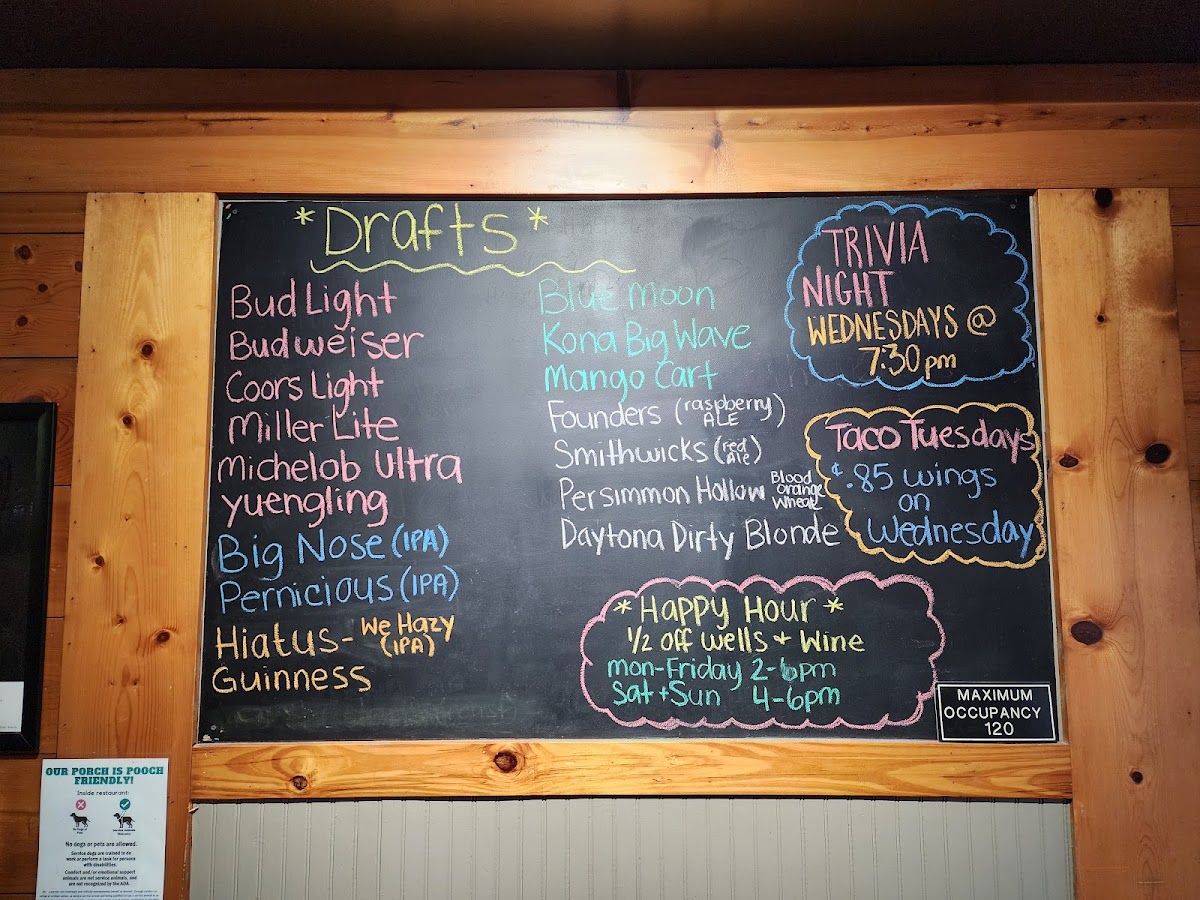 *Drafts*
Bud Light
Budweiser
Coors Light
Miller Lite
Michelob Ultra
yuengling
Big Nose (IPA)
Pernicious (IPA)
Hiatus - We Hazy
(IPA)
Guinness
Blue Moon
Kona Big Wave
Mango Cart
Founders (raspberry)
ALE
Smithwicks (red
Ale)
Persimmon Hollow Blood
orange
wheat
Daytona Dirty Blonde
TRIVIA
NIGHT
WEDNESDAYS @
7:30 pm
Taco Tuesdays
¢.85 wings
on
Wednesday
*Happy Hour*
1/2 off wells + Wine
mon-Friday 2-6pm
Sat + Sun 4-6pm
MAXIMUM
OCCUPANCY
120
OUR PORCH IS POOCH
FRIENDLY!
Inside restaurant:
No dogs or pets are allowed.
Service dogs are trained to do
work or perform a task for persons
with disabilities.
Comfort and/or emotional support
animals are not service animals, and
are not recognized by the ADA.